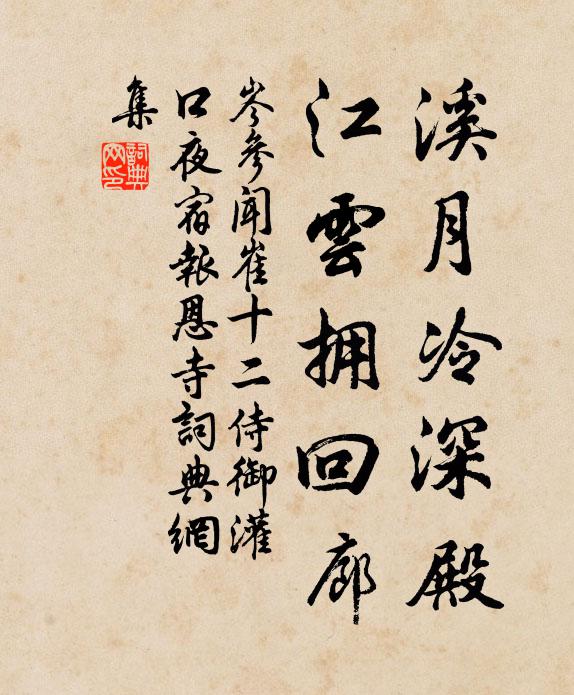 溪月冷深殿
江雲拥回廊
岑參闻崔十二侍御灌
口夜宿報恩寺詞典網
集
詞典
网印